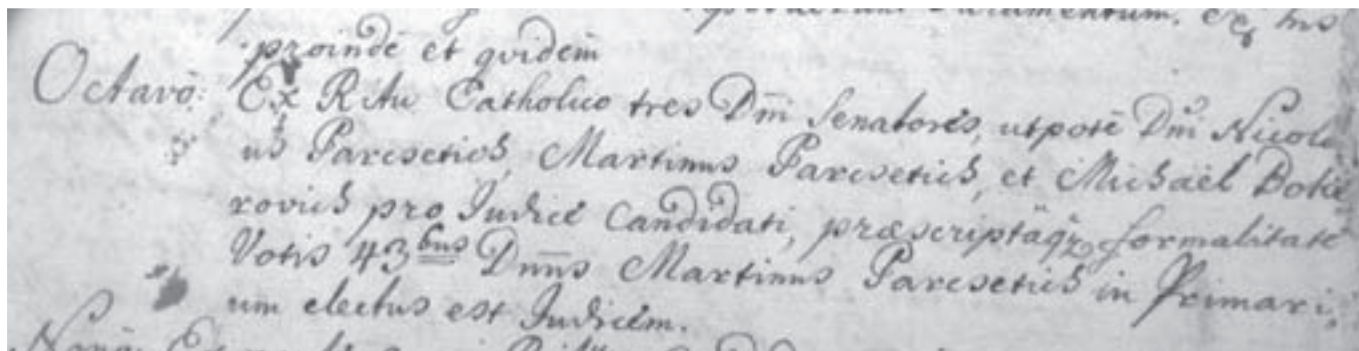 Juramentum. Ex his
proindè et quidem
Octavò: Ex Ritu Catholico tres Dni Senatores, utpotè Dni Nicola
us Parcsetich, Martinus Parcsetich, et Michaël Bokie
rovich pro Judice Candidati, præscriptâq; formalitate
Votis 43bus Dnus Martinus Parcsetich in Primari,
um electus est Judicem.